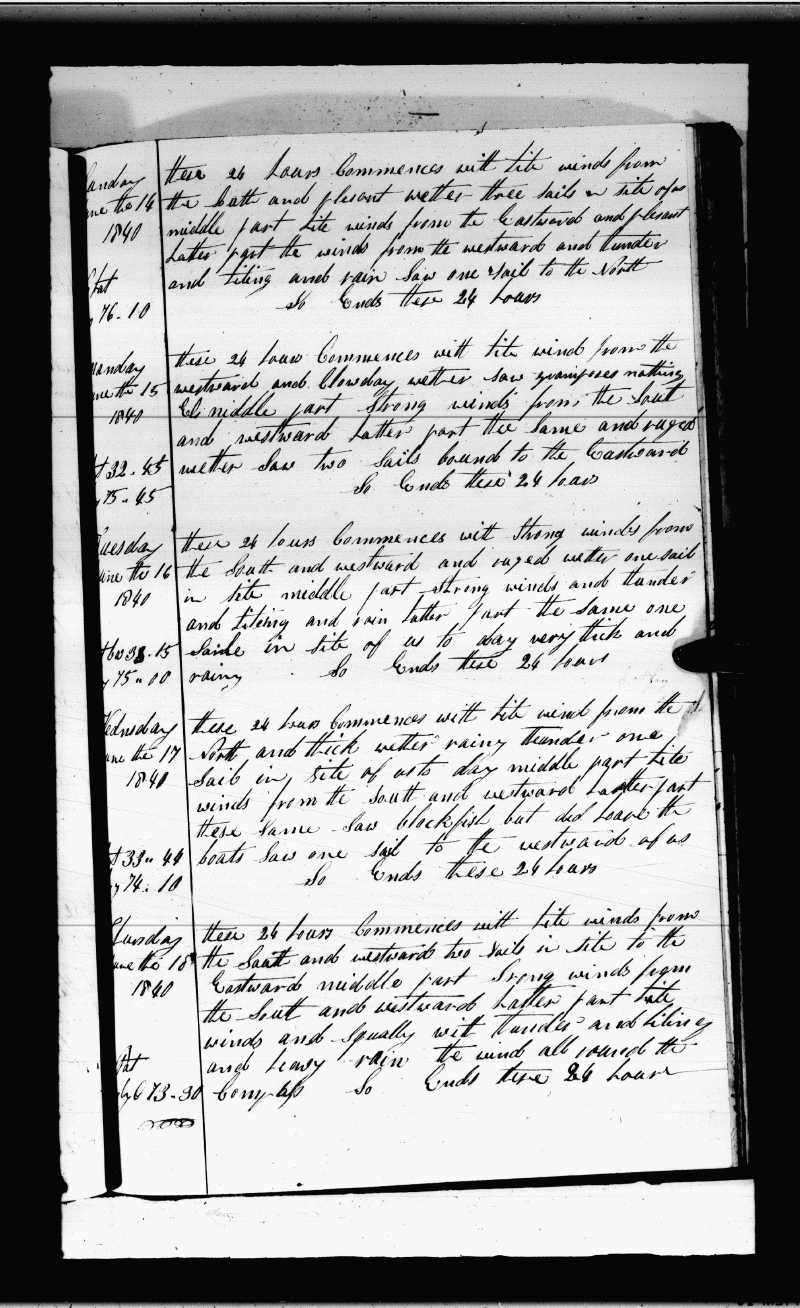 Sunday
June the 14
1840
Lat
76-10
these 24 hours Commences with lite winds from
the South and plesant wether three sails in site of us
middle part lite winds from the Eastward and plesant
Latter part the winds from the westward and thunder
and liting and rain Saw one sail to the North
So Ends these 24 hours
Monday
June the 15
1840
32-45
75-45
these 24 hours Commences with lite wind from the
westward and Clowday wether saw grampses nothing
Els middle part Strong winds from the South
and westward Latter part the Same and ruged
wether Saw two Sails bound to the Eastward
So Ends these 24 hours
Tuesday
June the 16
1840
38-15
75"00
these 24 hours Commences with Strong winds from
the South and westward and ruged wether one sail
in site middle part Strong winds and thunder
and liteing and rain latter part the Same one
Saile in Site of us to day very thick and
rainy So Ends these 24 hours
Wednsday
June the 17
1840
33"44
74:10
these 24 hours Commences with lite wind from the
North and thick wether rainy thunder one
Sail in site of us to day middle part Lite
winds from the South and westward Latter part
these Same Saw blackfish but did Loare the
boats Saw one Sail to the westward of us
So Ends these 24 hours
Thursday
June the 18
1840
Lat
73-30
these 24 hours Commences with Lite winds from
the South and westward two Sails in Site to the
Eastward middle part Srong winds from
the South and westward Latter part Lite
winds and Squally with thunder and liting
and heavy rain the wind all round the
Compass So Ends these 24 hours